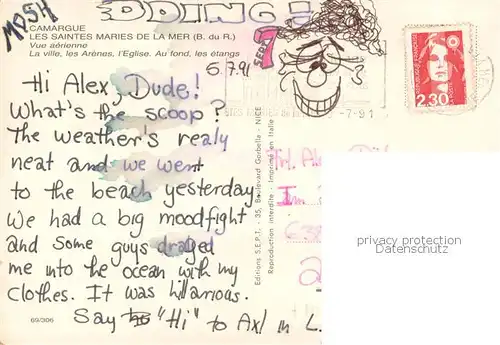 MOSH
DOING!
CAMARGUE
LES SAINTES MARIES DE LA MER (B. du R.)
Vue aérienne
La ville, les Arènes, l'Eglise. Au fond, les étangs
5.7.91
Hi Alex, Dude!
What's the scoop?
The weather's realy
neat and we went
to the beach yesterday.
We had a big moodfight
and some guys draged
me into the ocean with my
clothes. It was hillarious.
Say to "Hi" to Axl in L.
69/306
Editions S.E.P.T. - 35, Boulevard Gorbella - NICE
Reproduction interdite - Imprimé en Italie
-7-91
2,30
privacy protection
Datenschutz